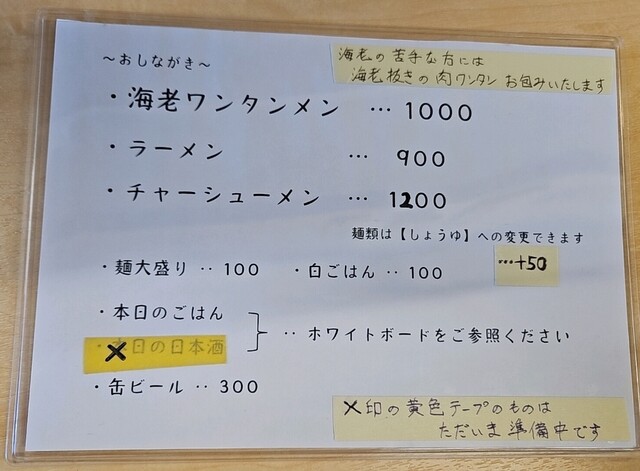 ～おしながき～
海老の苦手な方には
海老抜きの肉ワンタン お包みいたします
・海老ワンタンメン … 1000
・ラーメン … 900
・チャーシューメン … 1200
麺類は【しょうゆ】への変更できます
…+50
・麺大盛り ‥ 100 ・白ごはん ‥ 100
・本日のごはん
・本日の日本酒
‥ ホワイトボードをご参照ください
・缶ビール ‥ 300
×印の黄色テープのものは
ただいま準備中です